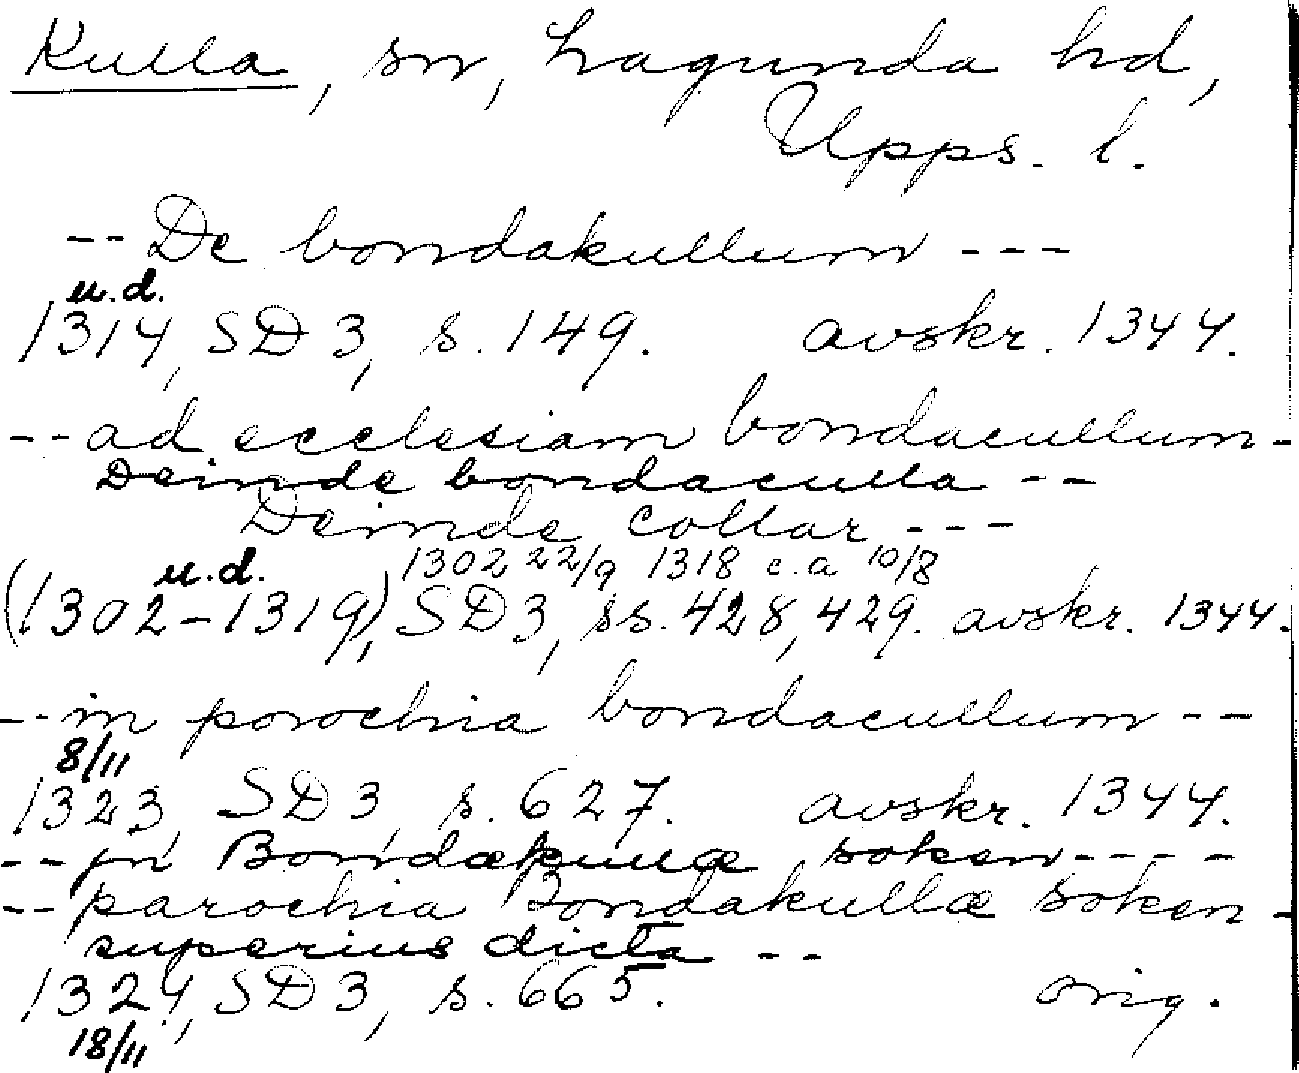 Kulla, sn, Lagunda hd,
Upps. l.
-- De bondakullum ---
u.d.
1314, SD 3, s. 149. avskr. 1344.
-- ad ecclesiam bondacullum -
Deinde bondaculla --
Deinde collar ---
u.d. 1302 22/9 1318 c.a 10/8
(1302-1319), SD 3, ss. 428, 429. avskr. 1344.
-- in parochia bondacullum --
8/11
1323, SD 3, s. 627. avskr. 1344.
-- jn Bondækullæ soken ----
-- parochia Bondakullæ soken -
superius dicta --
1324, SD 3, s. 665. orig.
18/11